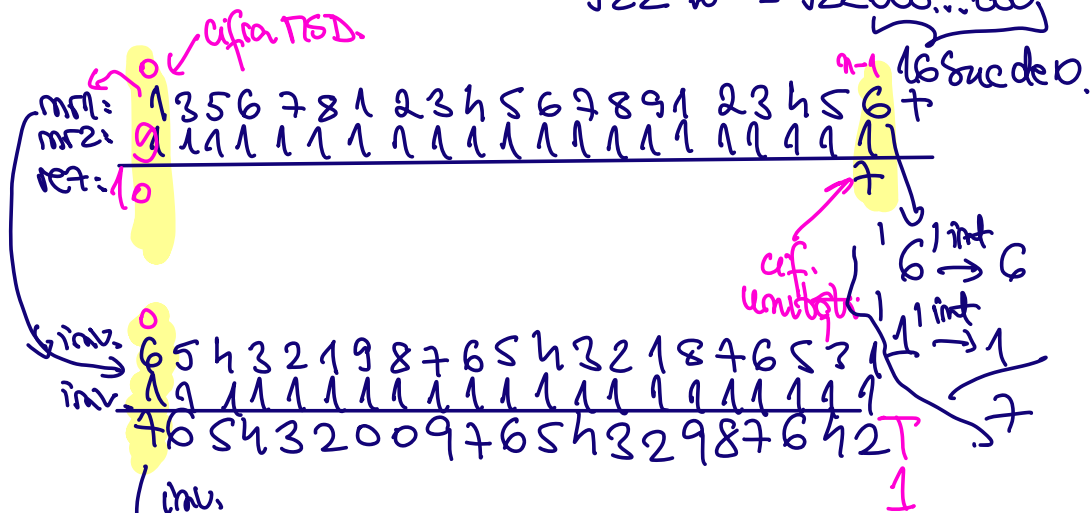 522000...000,
cifra MSD.
0
n-1 16 Suc de 0.
nr1: 1 3 5 6 7 8 1 2 3 4 5 6 7 8 9 1 2 3 4 5 6 +
nr2: 1 1 1 1 1 1 1 1 1 1 1 1 1 1 1 1 1 1 1 1 1
9
rez: 1 0 7
'6' int → 6
cif. unitat.
'1' int → 1
0
inv. 6 5 4 3 2 1 9 8 7 6 5 4 3 2 1 8 7 6 5 3 1
inv. 1 1 1 1 1 1 1 1 1 1 1 1 1 1 1 1 1 1 1 1 1
7
7 6 5 4 3 2 0 0 9 7 6 5 4 3 2 9 8 7 6 4 2
1
inv.